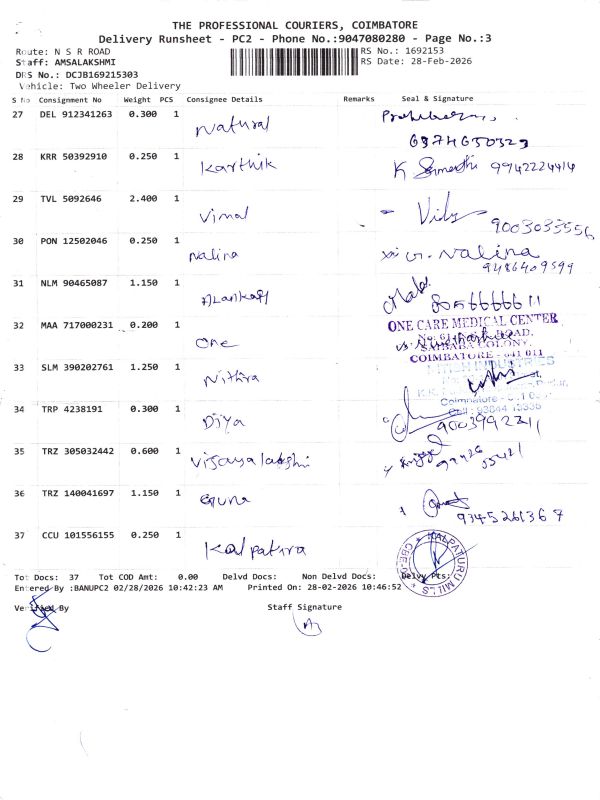 THE PROFESSIONAL COURIERS, COIMBATORE
Delivery Runsheet - PC2 - Phone No.:9047080280 - Page No.:3
Route: N S R ROAD RS No.: 1692153
Staff: AMSALAKSHMI RS Date: 28-Feb-2026
DRS No.: DCJB169215303
Vehicle: Two Wheeler Delivery
S No Consignment No Weight PCS Consignee Details Remarks Seal & Signature
27 DEL 912341263 0.300 1 Natural
28 KRR 50392910 0.250 1 Karthik K 9942224414
29 TVL 5092646 2.400 1 Vimal 9003035556
30 PON 12502046 0.250 1 Nalina Nalina
9486409599
31 NLM 90465087 1.150 1
32 MAA 717000231 0.200 1 One ONE CARE MEDICAL CENTER
ROAD,
SAIBABA COLONY,
COIMBATORE - 641 011
33 SLM 390202761 1.250 1 Nithra INDUSTRIES
Coimbatore
34 TRP 4238191 0.300 1 Diya
35 TRZ 305032442 0.600 1 Vijayalakshmi
36 TRZ 140041697 1.150 1 Guna
9345261367
37 CCU 101556155 0.250 1 Kalpatura KALPATURU MILLS
Tot Docs: 37 Tot COD Amt: 0.00 Delvd Docs: Non Delvd Docs: Delvy Pts:
Entered By :BANUPC2 02/28/2026 10:42:23 AM Printed On: 28-02-2026 10:46:52
Verified By Staff Signature